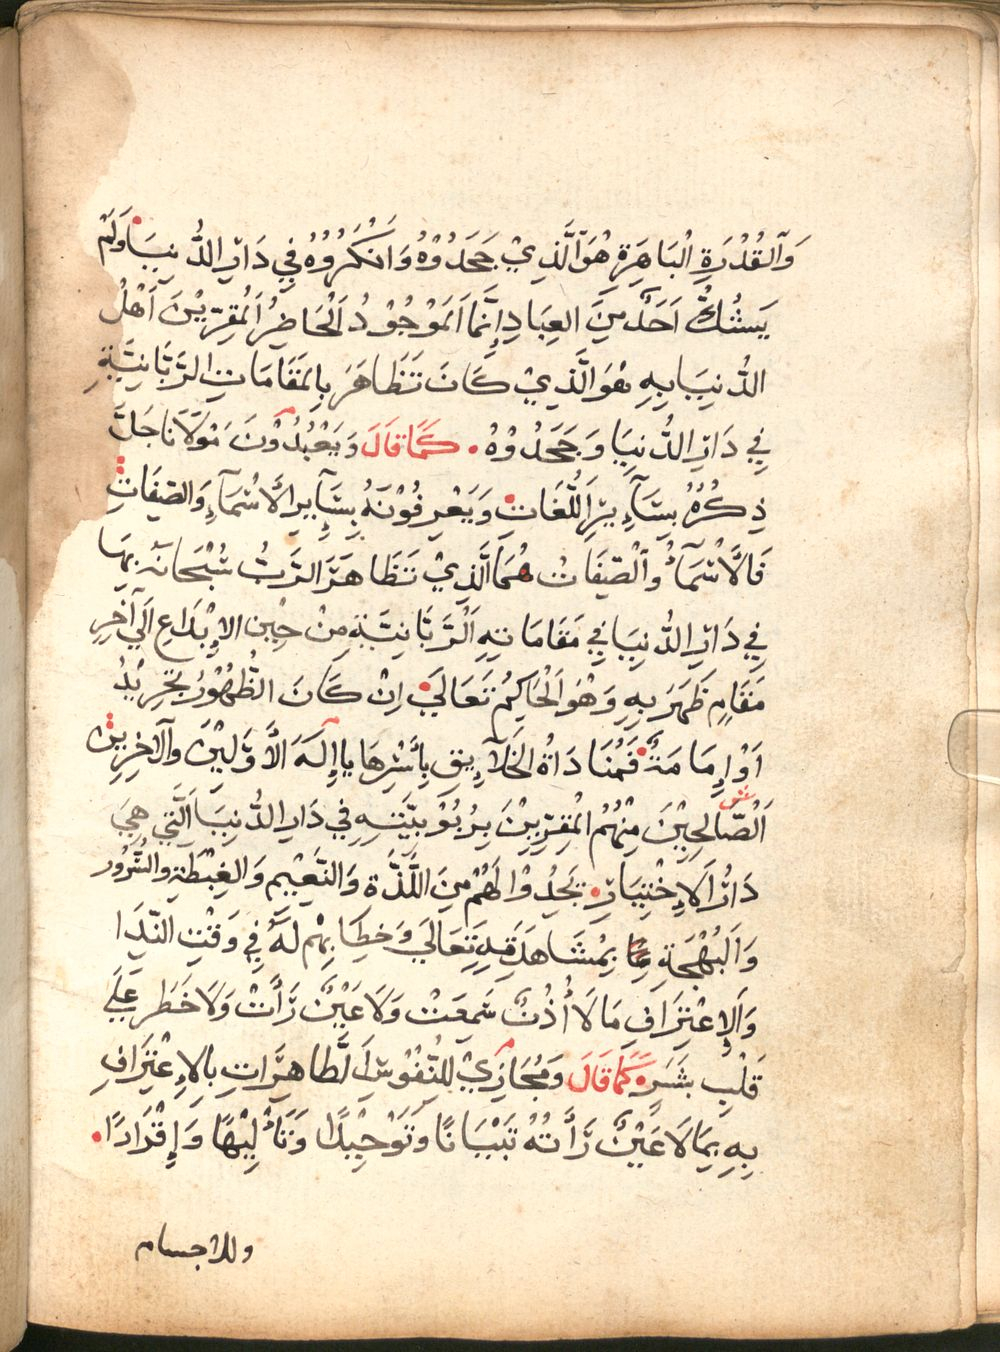 وَالقُدْرَةِ الْبَاهَرَةِ هُوَ الَّذِيْ جَحَدُوْهُ وَانْكَرُوْهُ فِي دَارِ الدُّنيَا وَلَمْ
يَشُكُّ اَحَدٌ مِنَ العِبَادِ اِنَّمَا اَلمَوْجُوْدُ اَلْحَاضِرُ اَلْمُقِرِّيْنَ اَهْلُ
الدُّنيَا بِهِ هُوَ الَّذِيْ كَانَ تَظَاهَرَ بِالمَقَامَاتِ الرَّبَّانِيَّةِ
فِي دَارِ الدُّنيَا وَجَحَدُوْهُ. كَمَا قَالَ وَيَعْبُدُوْنَ مَوْلَانَا جَلَّ
ذِكْرُهُ بِسَآءِيرِ اَللُّغَاتِ وَيَعْرِفُوْنَهُ بِسَآيِرِ الْاَسْمَآءِ وَالصِّفَاتِ
فَالْاَسْمَآءُ وَالْصِّفَاتْ هُمَا الَّذِيْ تَظَاهَرَ الرَّبُّ سُبْحَانَهُ بِهَا
فِي دَارِ الدُّنيَا فِي مَقَامَاتِهِ اَلْرَّبَّانِيَّةِ مِنْ حِيْنِ الاِبْدَاعِ اَلَي آخِرِ
مَقَامٍ ظَهَرَ بِهِ وَهُوَ اَلْحَاكِمُ تَعَالَيَ اِنْ كَانَ الظُّهُوْرُ تَجْرِيْدُ
اَوْ اِمَامَةٌ فَمُنَادَاةُ الخَلَآيِقِ بِأَسْرِهَا يا اِلَهَ الْاَوَّلِيْنَ وَالآخِرِيْنَ
اَلْصَّالِحِيْنَ مِنْهُمُ الْمُقِرِّيْنَ بِرُبُوْبِيَّتِهِ فِي دَارِ الدُّنيَا اَلَّتِي هِيَ
دَارُ اَلاِخْتِيَارِ. تَجِدُوْا لَهُمْ مِنَ اللَّذَّةِ وَالنَّعِيْمِ وَالغِبْطَةِ وَالسُّرُوْر
وَاَلبُهْجَةِ بِمُشَاهَدَتِهِ تَعَالَي وَخِطَابِهِمْ لَهُ فِي وَقْتِ النِّدَا
وَاَلاِعْتِرَافِ مَا لَا أُذُنٌ سَمِعَتْ وَلَا عَيْنٌ رَأَتْ وَلَا خَطَر عَلَي
قَلْبِ بَشَرٍ كَمَا قَالَ وَمُجَازِيْ لِلنُّفُوْسِ اَلطَّاهِرَاتِ بِالاِعْتِرَافِ
بِهِ بِمَا لَا عَيْنٌ رَأَتْهُ تِبْيَانًا وَتَوْحِيْدًا وَتَأْلِيْهًا وَإِقْرَارًا.
وللاجسام